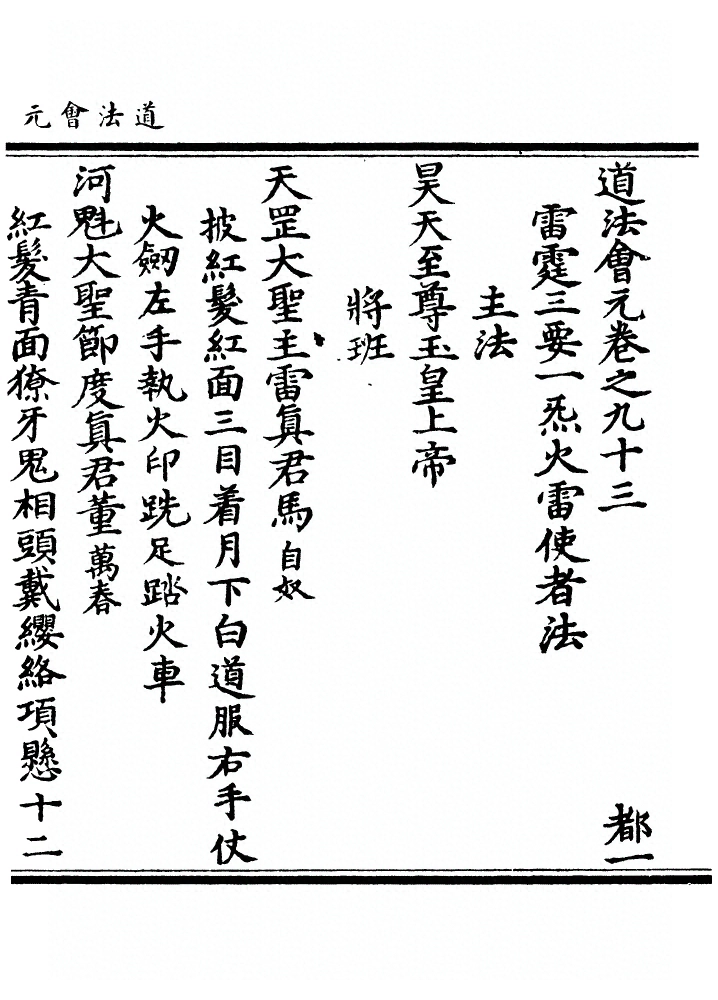 道法會元
道法會元卷之九十三　都一
雷霆三要一炁火雷使者法
主法
昊天至尊玉皇上帝
將班
天罡大聖主雷眞君馬自奴
披紅髮紅面三目着月下白道服右手仗
火劒左手執火印跣足踏火車
河魁大聖節度眞君董萬春
紅髮青面獠牙鬼相頭戴纓絡項懸十二